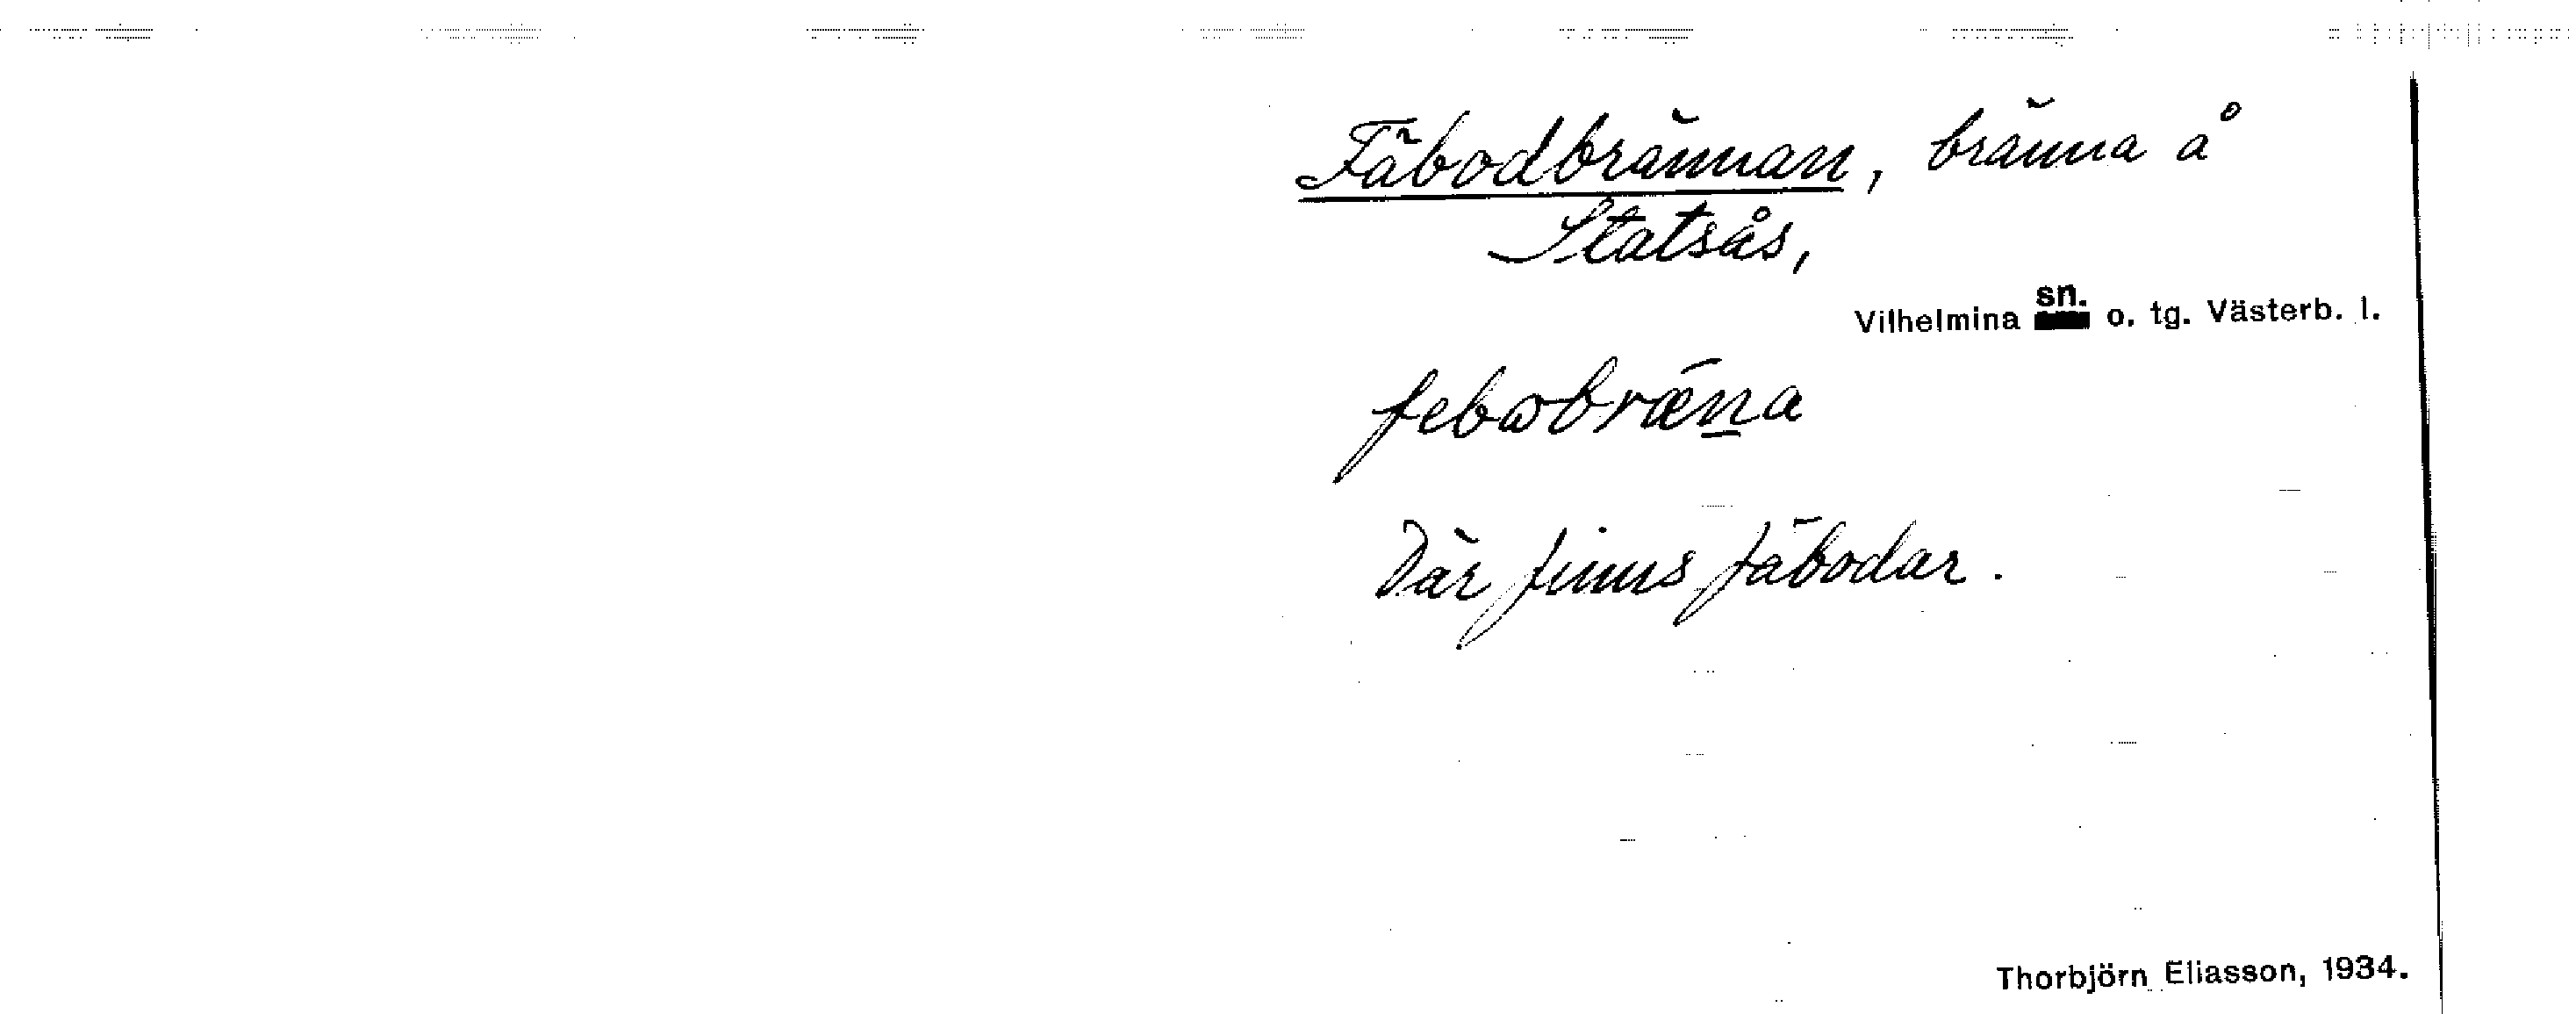 Fäbodbrännan, bränna å
Statsås,
Vilhelmina sn. o. tg. Västerb. l.
febωbræ̀n̲a
Där finns fäbodar.
Thorbjörn Eliasson, 1934.